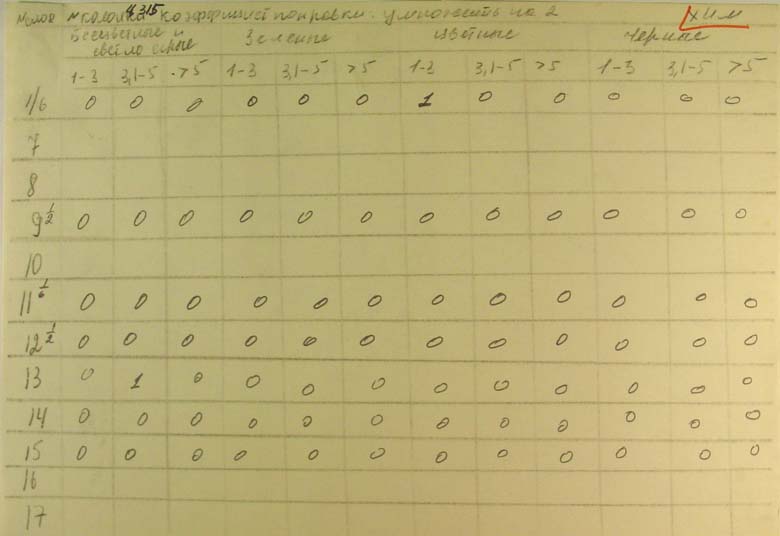 № слоя № колонка 4315 коэффициент поправки: умножить на 2 хим
Бесцветные и светло серые Зеленые Цветные Черные
1-3 3,1-5 >5 1-3 3,1-5 >5 1-3 3,1-5 >5 1-3 3,1-5 >5
1/6 0 0 0 0 0 0 1 0 0 0 0 0
7
8
9 1/2 0 0 0 0 0 0 0 0 0 0 0 0
10
11 1/6 0 0 0 0 0 0 0 0 0 0 0 0
12 1/2 0 0 0 0 0 0 0 0 0 0 0 0
13 0 1 0 0 0 0 0 0 0 0 0 0
14 0 0 0 0 0 0 0 0 0 0 0 0
15 0 0 0 0 0 0 0 0 0 0 0 0
16
17